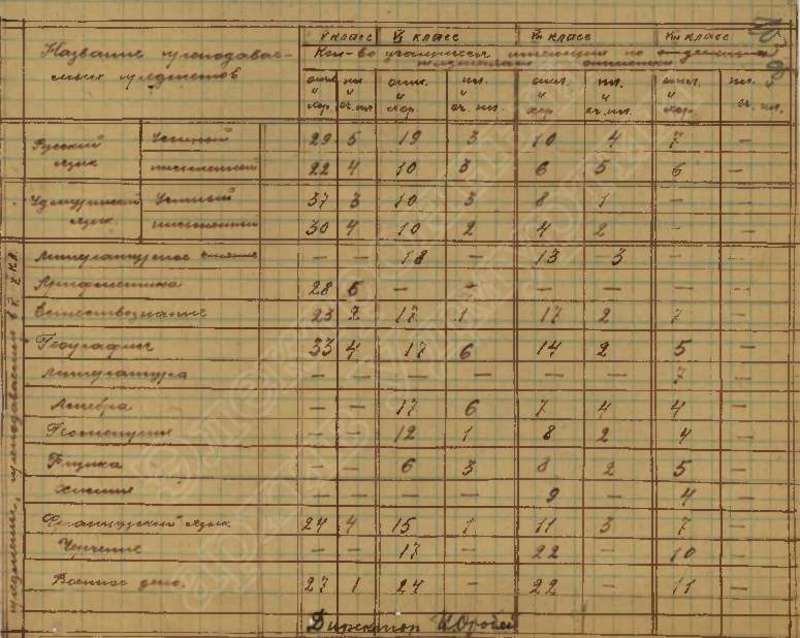 V класс VI класс VII класс VIII класс
Название преподавае-
мых предметов
Кол-во учащихся имеющих по
отл. и хор. пл. и оч. пл. отл. и хор. пл. и оч. пл. отл. и хор. пл. и оч. пл. отл. и хор. пл. и оч. пл.
Русский язык Устный 29 5 19 3 10 4 7 —
письменный 22 4 10 3 6 5 6 —
Удмуртский язык Устный 37 3 10 3 8 1 —
письменный 30 4 10 2 4 2 —
Литературное чтение — — 18 — 13 3 — —
Арифметика 28 6 — — — — — —
Естествознание 23 2 17 1 17 2 7 —
География 33 4 17 6 14 2 5 —
Литература — — — — — — 7 —
Алгебра — — 17 6 7 4 4 —
Геометрия — — 12 1 8 2 4 —
Физика — — 6 3 8 2 5 —
Химия — — — — 9 — 4 —
Французский язык 24 4 15 1 11 3 7 —
Черчение — — 17 — 22 — 10 —
Военное дело. 27 1 24 — 22 — 11 —
Директор